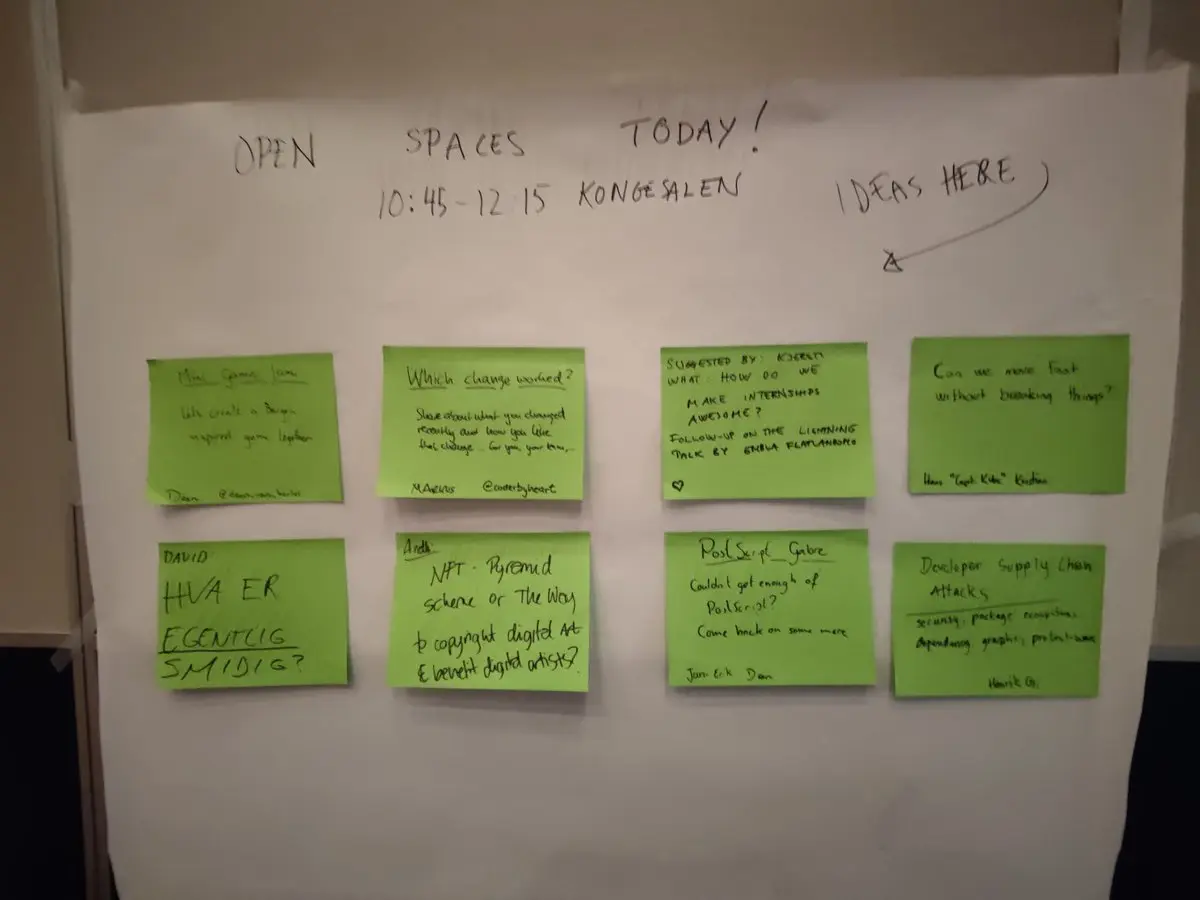 OPEN SPACES TODAY!
10:45-12 15 KONGESALEN
IDEAS HERE
Mini Game Jam
Let's create a
inspired game together
Dean
Which change worked?
Share about what you changed
recently and how you like
that change... For you, your team,...
MARKUS @coderbyheart
SUGGESTED BY: KJERSTI
WHAT: HOW DO WE
MAKE INTERNSHIPS
AWESOME?
FOLLOW-UP ON THE LIGHTNING
TALK BY
Can we move fast
without breaking things?
Hans Kristian
DAVID
HVA ER
EGENTLIG
SMIDIG?
NFT - Pyramid
scheme or The Way
to copyright digital Art
& benefit digital artists?
PostScript
Couldn't get enough of
PostScript?
Come hack on some more
Jan-Erik Dean
Developer Supply Chain
Attacks
security, package ecosystems,
dependency graphs,
Henrik G.